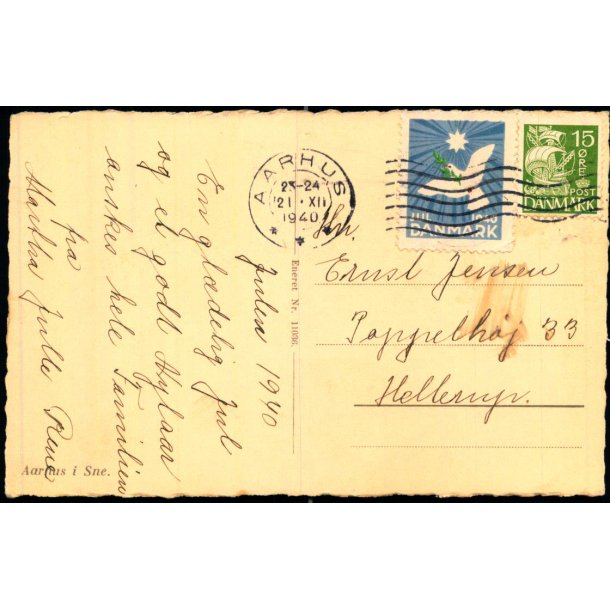 Julen 1940
En glædelig Jul
og et godt Nytaar
ønskes hele Familien
fra
Martha Julle Rene
Aarhus i Sne.
Eneret Nr. 11036.
AARHUS
23-24
21 XII
1940
JUL 1940
DANMARK
15
ØRE
POST
DANMARK
Hr.
Ernst Jensen
Poppelhøj 33
Hellerup.